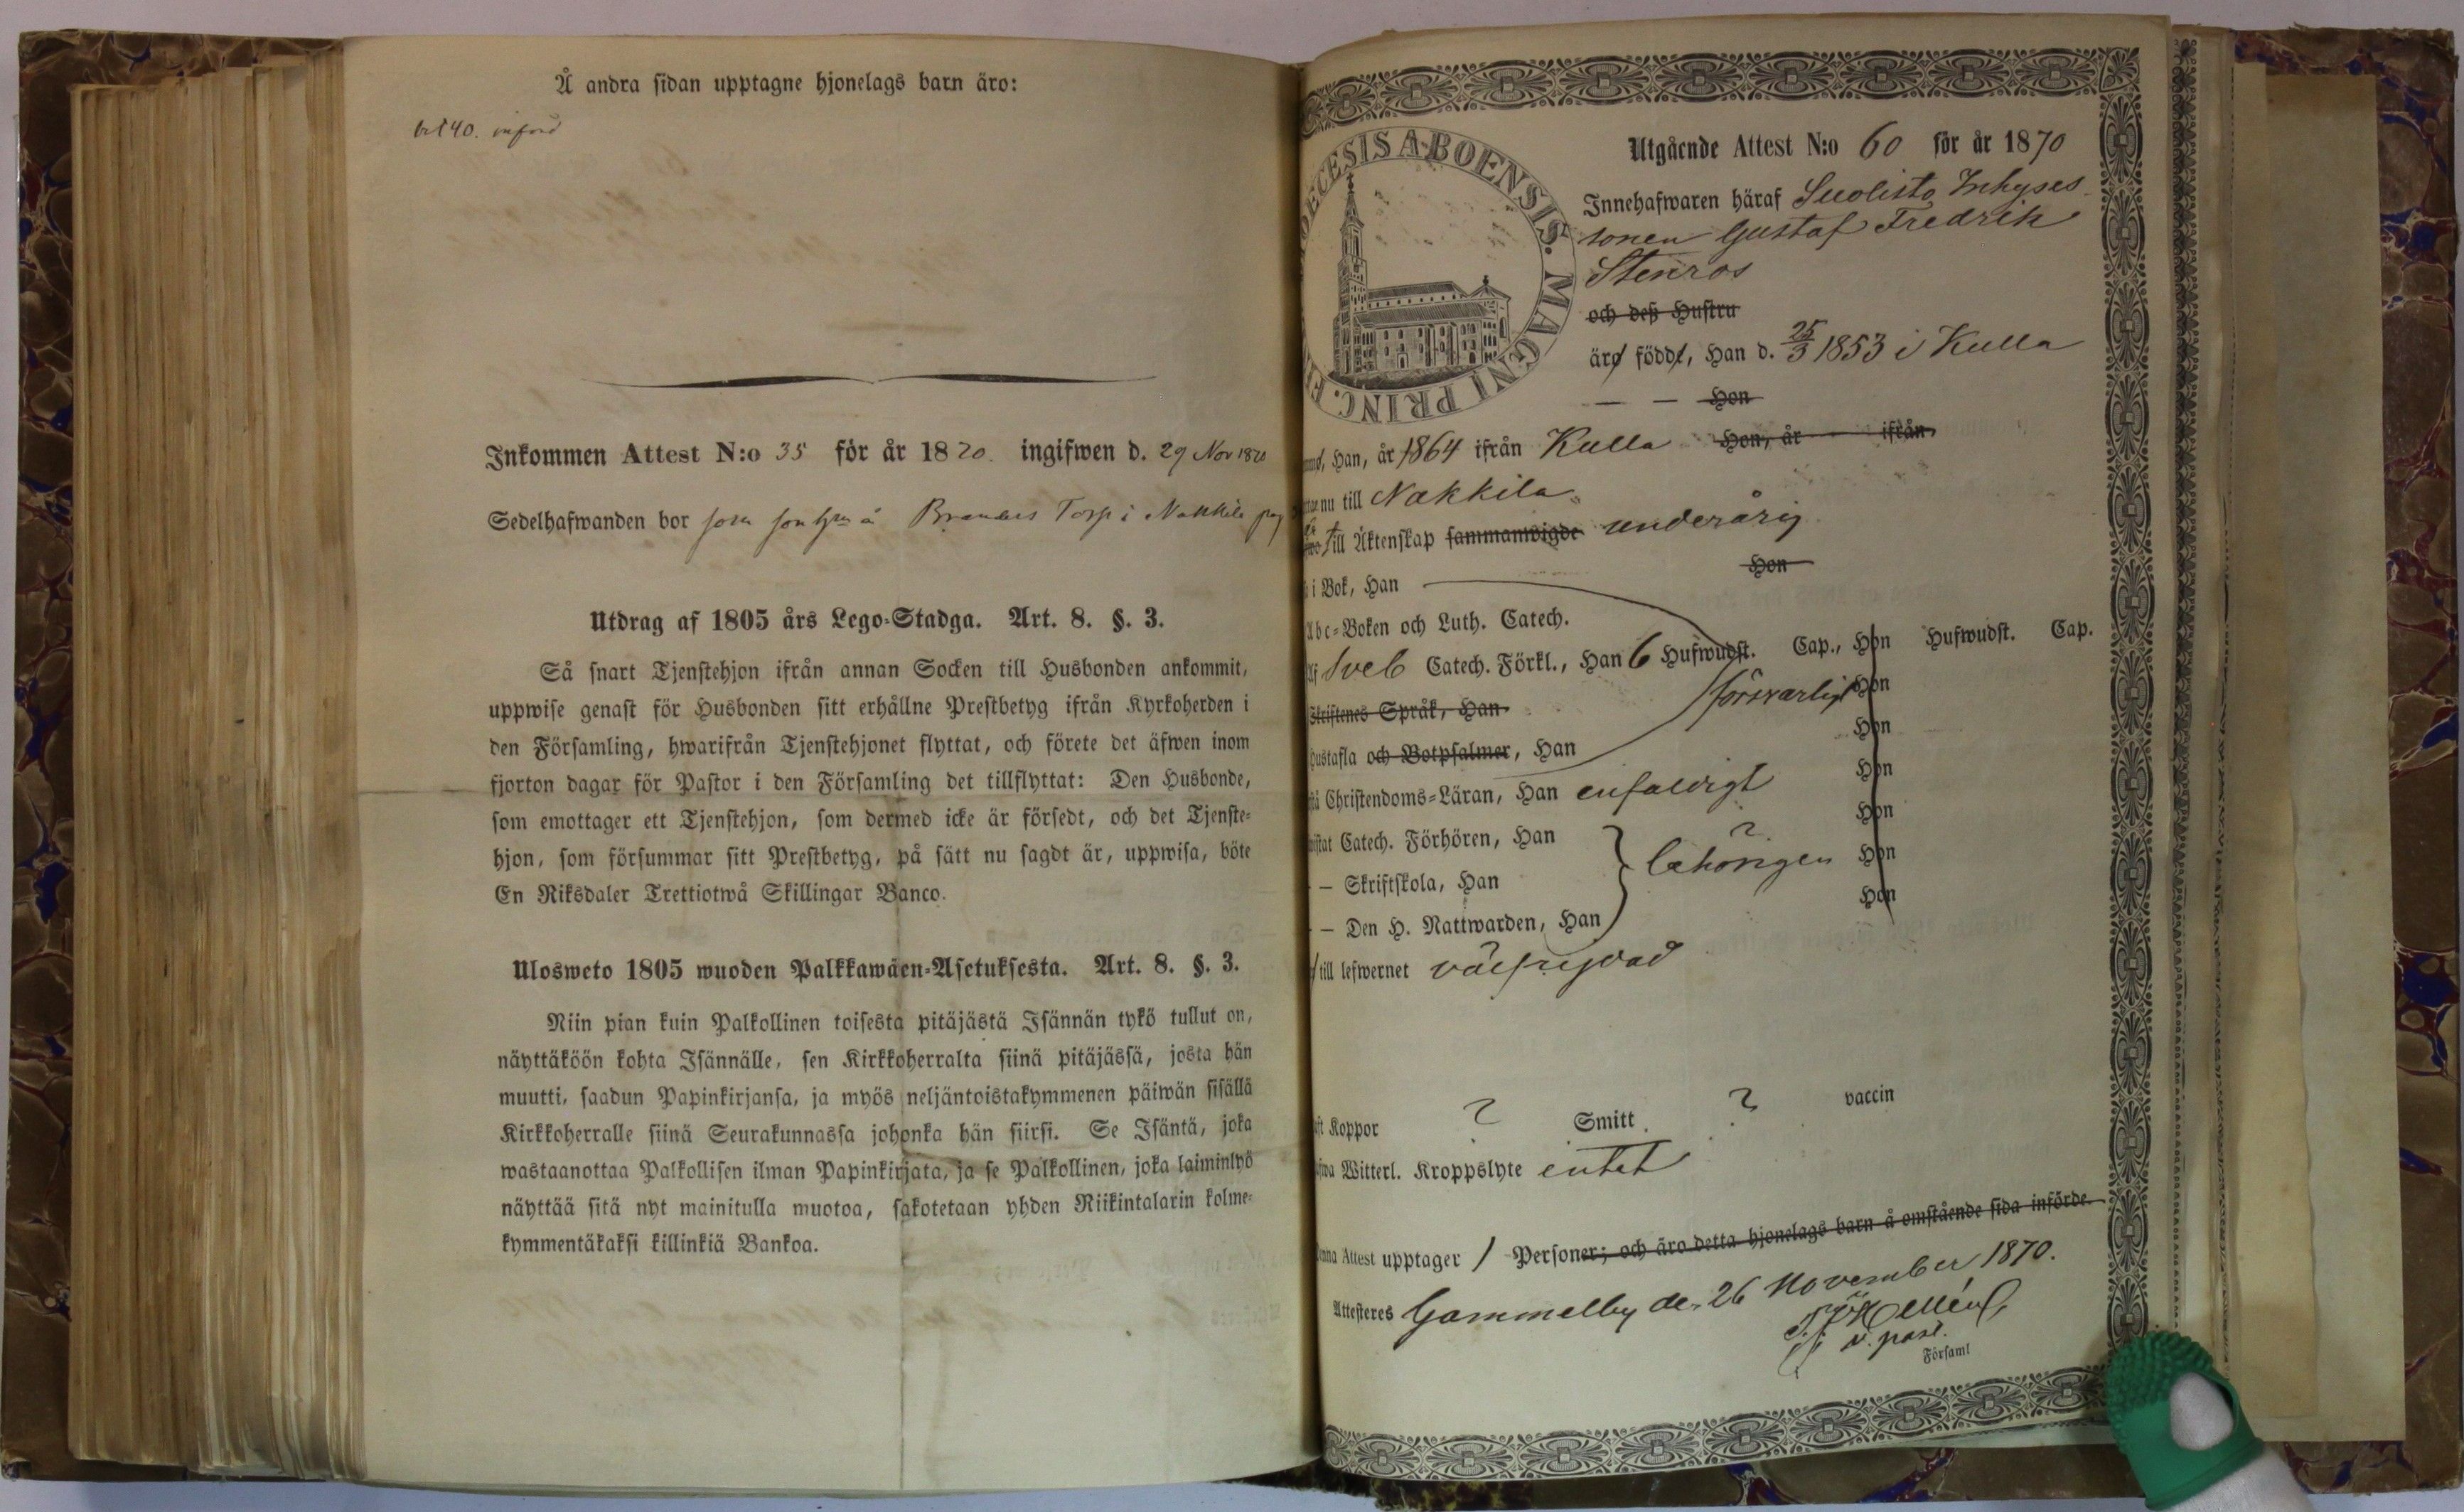 Å andra sidan upptagne hjonelags barn äro:
införd
Inkommen Attest N:o 35 för år 1870. ingifwen d. 29 Nov 1870
Sedelhafwanden bor som å Torp i Nakkila
Utdrag af 1805 års Lego-Stadga. Art. 8. §. 3.
Så snart Tjenstehjon ifrån annan Socken till Husbonden ankommit,
uppwise genast för Husbonden sitt erhållne Prestbetyg ifrån Kyrkoherden i
den Församling, hwarifrån Tjenstehjonet flyttat, och förete det äfwen inom
fjorton dagar för Pastor i den Församling det tillflyttat: Den Husbonde,
som emottager ett Tjenstehjon, som dermed icke är försedt, och det Tjenste-
hjon, som försummar sitt Prestbetyg, på sätt nu sagdt är, uppwisa, böte
En Riksdaler Trettiotwå Skillingar Banco.
Ulosweto 1805 wuoden Palkkawäen-Asetuksesta. Art. 8. §. 3.
Niin pian kuin Palkollinen toisesta pitäjästä Isännän tykö tullut on,
näyttäköön kohta Isännälle, sen Kirkkoherralta siinä pitäjässä, josta hän
muutti, saadun Papinkirjansa, ja myös neljäntoistakymmenen päiwän sisällä
Kirkkoherralle siinä Seurakunnassa johonka hän siirsi. Se Isäntä, joka
wastaanottaa Palkollisen ilman Papinkirjata, ja se Palkollinen, joka laiminlyö
näyttää sitä nyt mainitulla muotoa, sakotetaan yhden Riikintalarin kolme-
kymmentäkaksi killinkiä Bankoa.
ECESIS ABOENSIS. MAGNI PRINC.
Utgående Attest N:o 60 för år 1870
Innehafwaren häraf Suolisto Inhyses
sonen Gustaf Fredrik
Stenros
och deß Hustru
äro född, Han d. 25/3 1853 i Kulla
— — Hon
Han, år 1864 ifrån Kulla Hon, år ifrån
nu till Nakkila
till Äktenskap sammanwigde underårig
i Bok, Han Hon
Abc-Boken och Luth. Catech.
Sveb Catech. Förkl., Han 6 Hufwudst. Cap., Hon Hufwudst. Cap.
Skriftenes Språk, Han försvarligt Hon
Hustafla och Botpsalmer, Han Hon
Christendoms-Läran, Han enfaldigt Hon
Catech. Förhören, Han Hon
— Skriftskola, Han behörigen ? Hon
— Den H. Nattwarden, Han Hon
till lefwernet välfrejdad
Koppor ? Smitt. ? vaccin
Witterl. Kroppslyte intet
Denna Attest upptager 1 Personer; och äro detta hjonelags barn å omstående sida införde.
Attesteres Gammelby den 26 November 1870.
v. past.
Församl